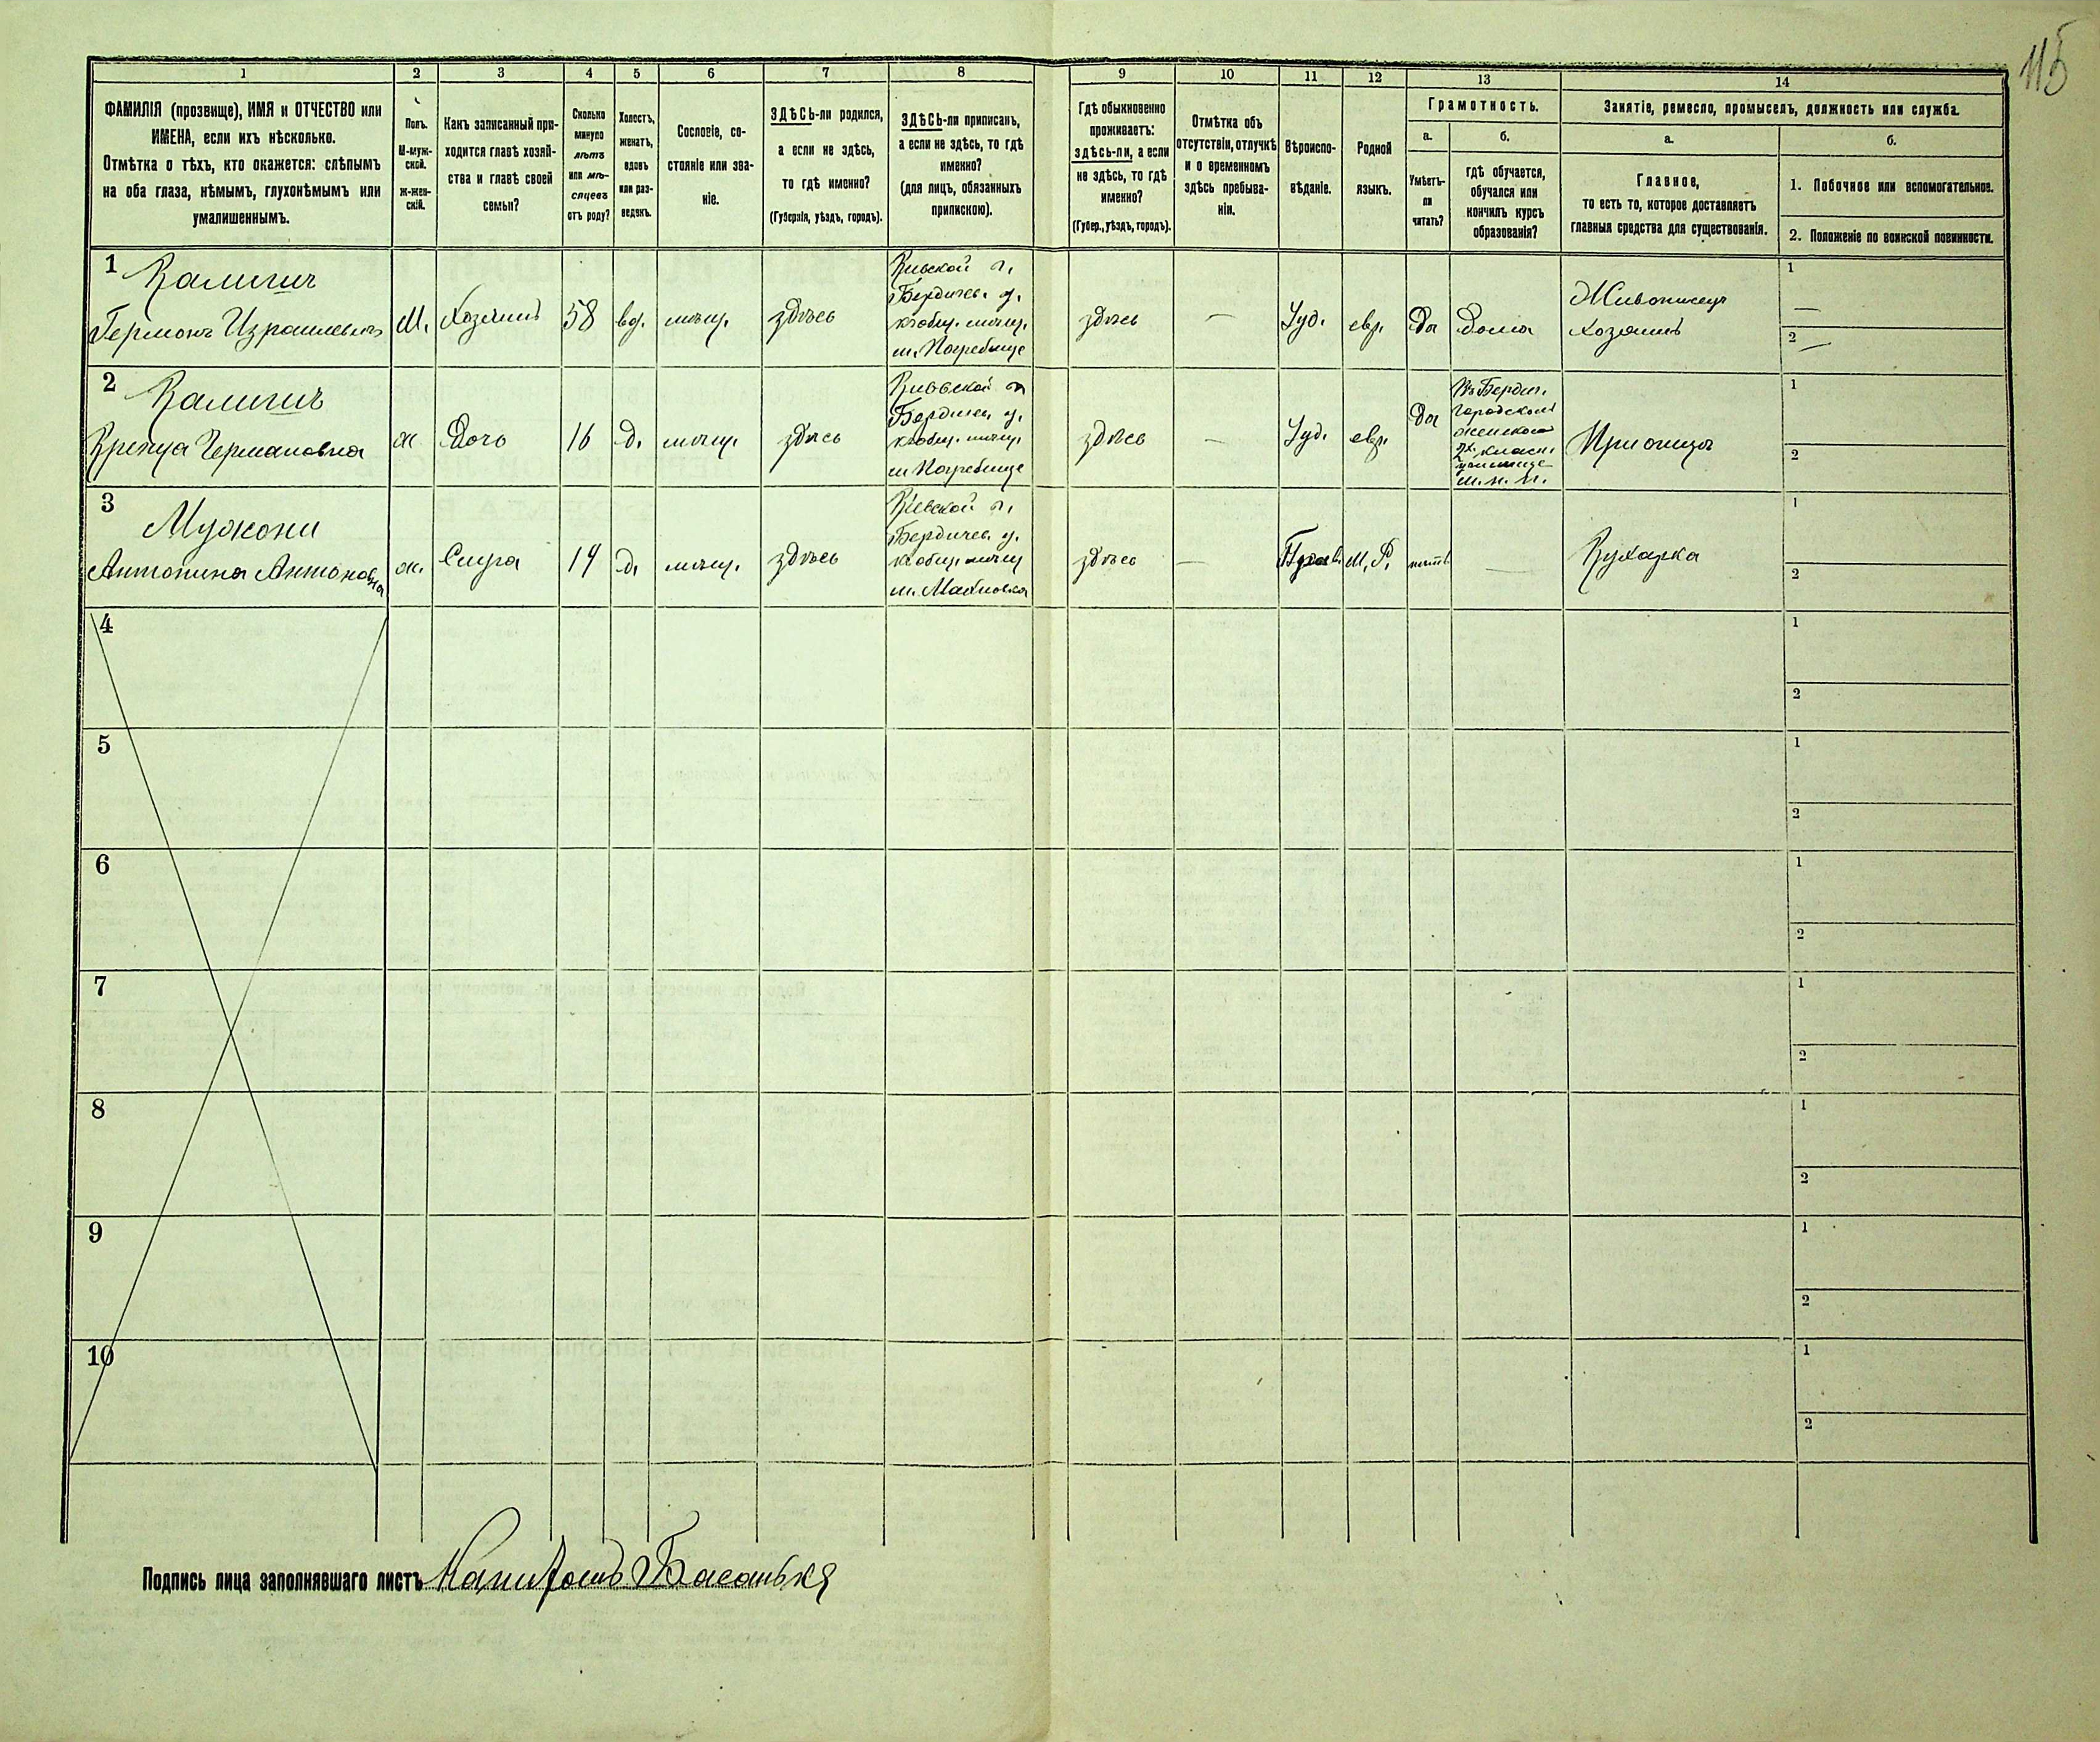 115
1
2
3
4
5
6
7
8
9
10
11
12
13
14
ФАМИЛІЯ (прозвище), ИМЯ и ОТЧЕСТВО или
ИМЕНА, если ихъ нѣсколько.
Отмѣтка о тѣхъ, кто окажется: слѣпымъ
на оба глаза, нѣмымъ, глухонѣмымъ или
умалишеннымъ.
Полъ.
М-муж-
ской.
Ж-жен-
скій.
Какъ записанный при-
ходится главѣ хозяй-
ства и главѣ своей
семьи?
Сколько
минуло
лѣтъ
или мѣ-
сяцевъ
отъ роду?
Холостъ,
женатъ,
вдовъ
или раз-
веденъ.
Сословіе, со-
стояніе или зва-
ніе.
ЗДѢСЬ-ли родился,
а если не здѣсь,
то гдѣ именно?
(Губернія, уѣздъ, городъ).
ЗДѢСЬ-ли приписанъ,
а если не здѣсь, то гдѣ
именно?
(для лицъ, обязанныхъ
припискою).
Гдѣ обыкновенно
проживаетъ:
здѣсь-ли, а если
не здѣсь, то гдѣ
именно?
(Губер., уѣздъ, городъ).
Отмѣтка объ
отсутствіи, отлучкѣ
и о временномъ
здѣсь пребыва-
ніи.
Вѣроиспо-
вѣданіе.
Родной
языкъ.
Грамотность.
а.
Умѣетъ-
ли
читать?
б.
гдѣ обучается,
обучался или
кончилъ курсъ
образованія?
Занятіе, ремесло, промыселъ, должность или служба.
а.
Главное,
то есть то, которое доставляетъ
главныя средства для существованія.
б.
1. Побочное или вспомогательное.
2. Положеніе по воинской повинности.
1
Калигич
Германъ Израилевичъ
М.
Хозяинъ
58
вд.
мѣщ.
здѣсь
Кіевской г.
Бердичев. у.
къ общ. мѣщ.
м. Погребище
здѣсь
—
Іуд.
евр.
Да
Дома
Живописецъ
хозяинъ
1
—
2
—
2
Калигич
Германовна
ж.
Дочь
16
д.
мѣщ.
здѣсь
Кіевской г.
Бердичев. у.
къ общ. мѣщ.
м. Погребище
здѣсь
—
Іуд.
евр.
Да
Въ Бердич.
городскомъ
женском
2х класн.
училище
м. н. п.
При отцѣ
1
2
3
Антонина Антоновна
ж.
14
д.
мѣщ.
здѣсь
Кіевской г.
Бердичев. у.
къ общ. мѣщ.
м. Махновка
здѣсь
—
М. Р.
нѣтъ
—
Кухарка
1
2
4
1
2
5
1
2
6
1
2
7
1
2
8
1
2
9
1
2
10
1
2
Подпись лица заполнявшаго листъ